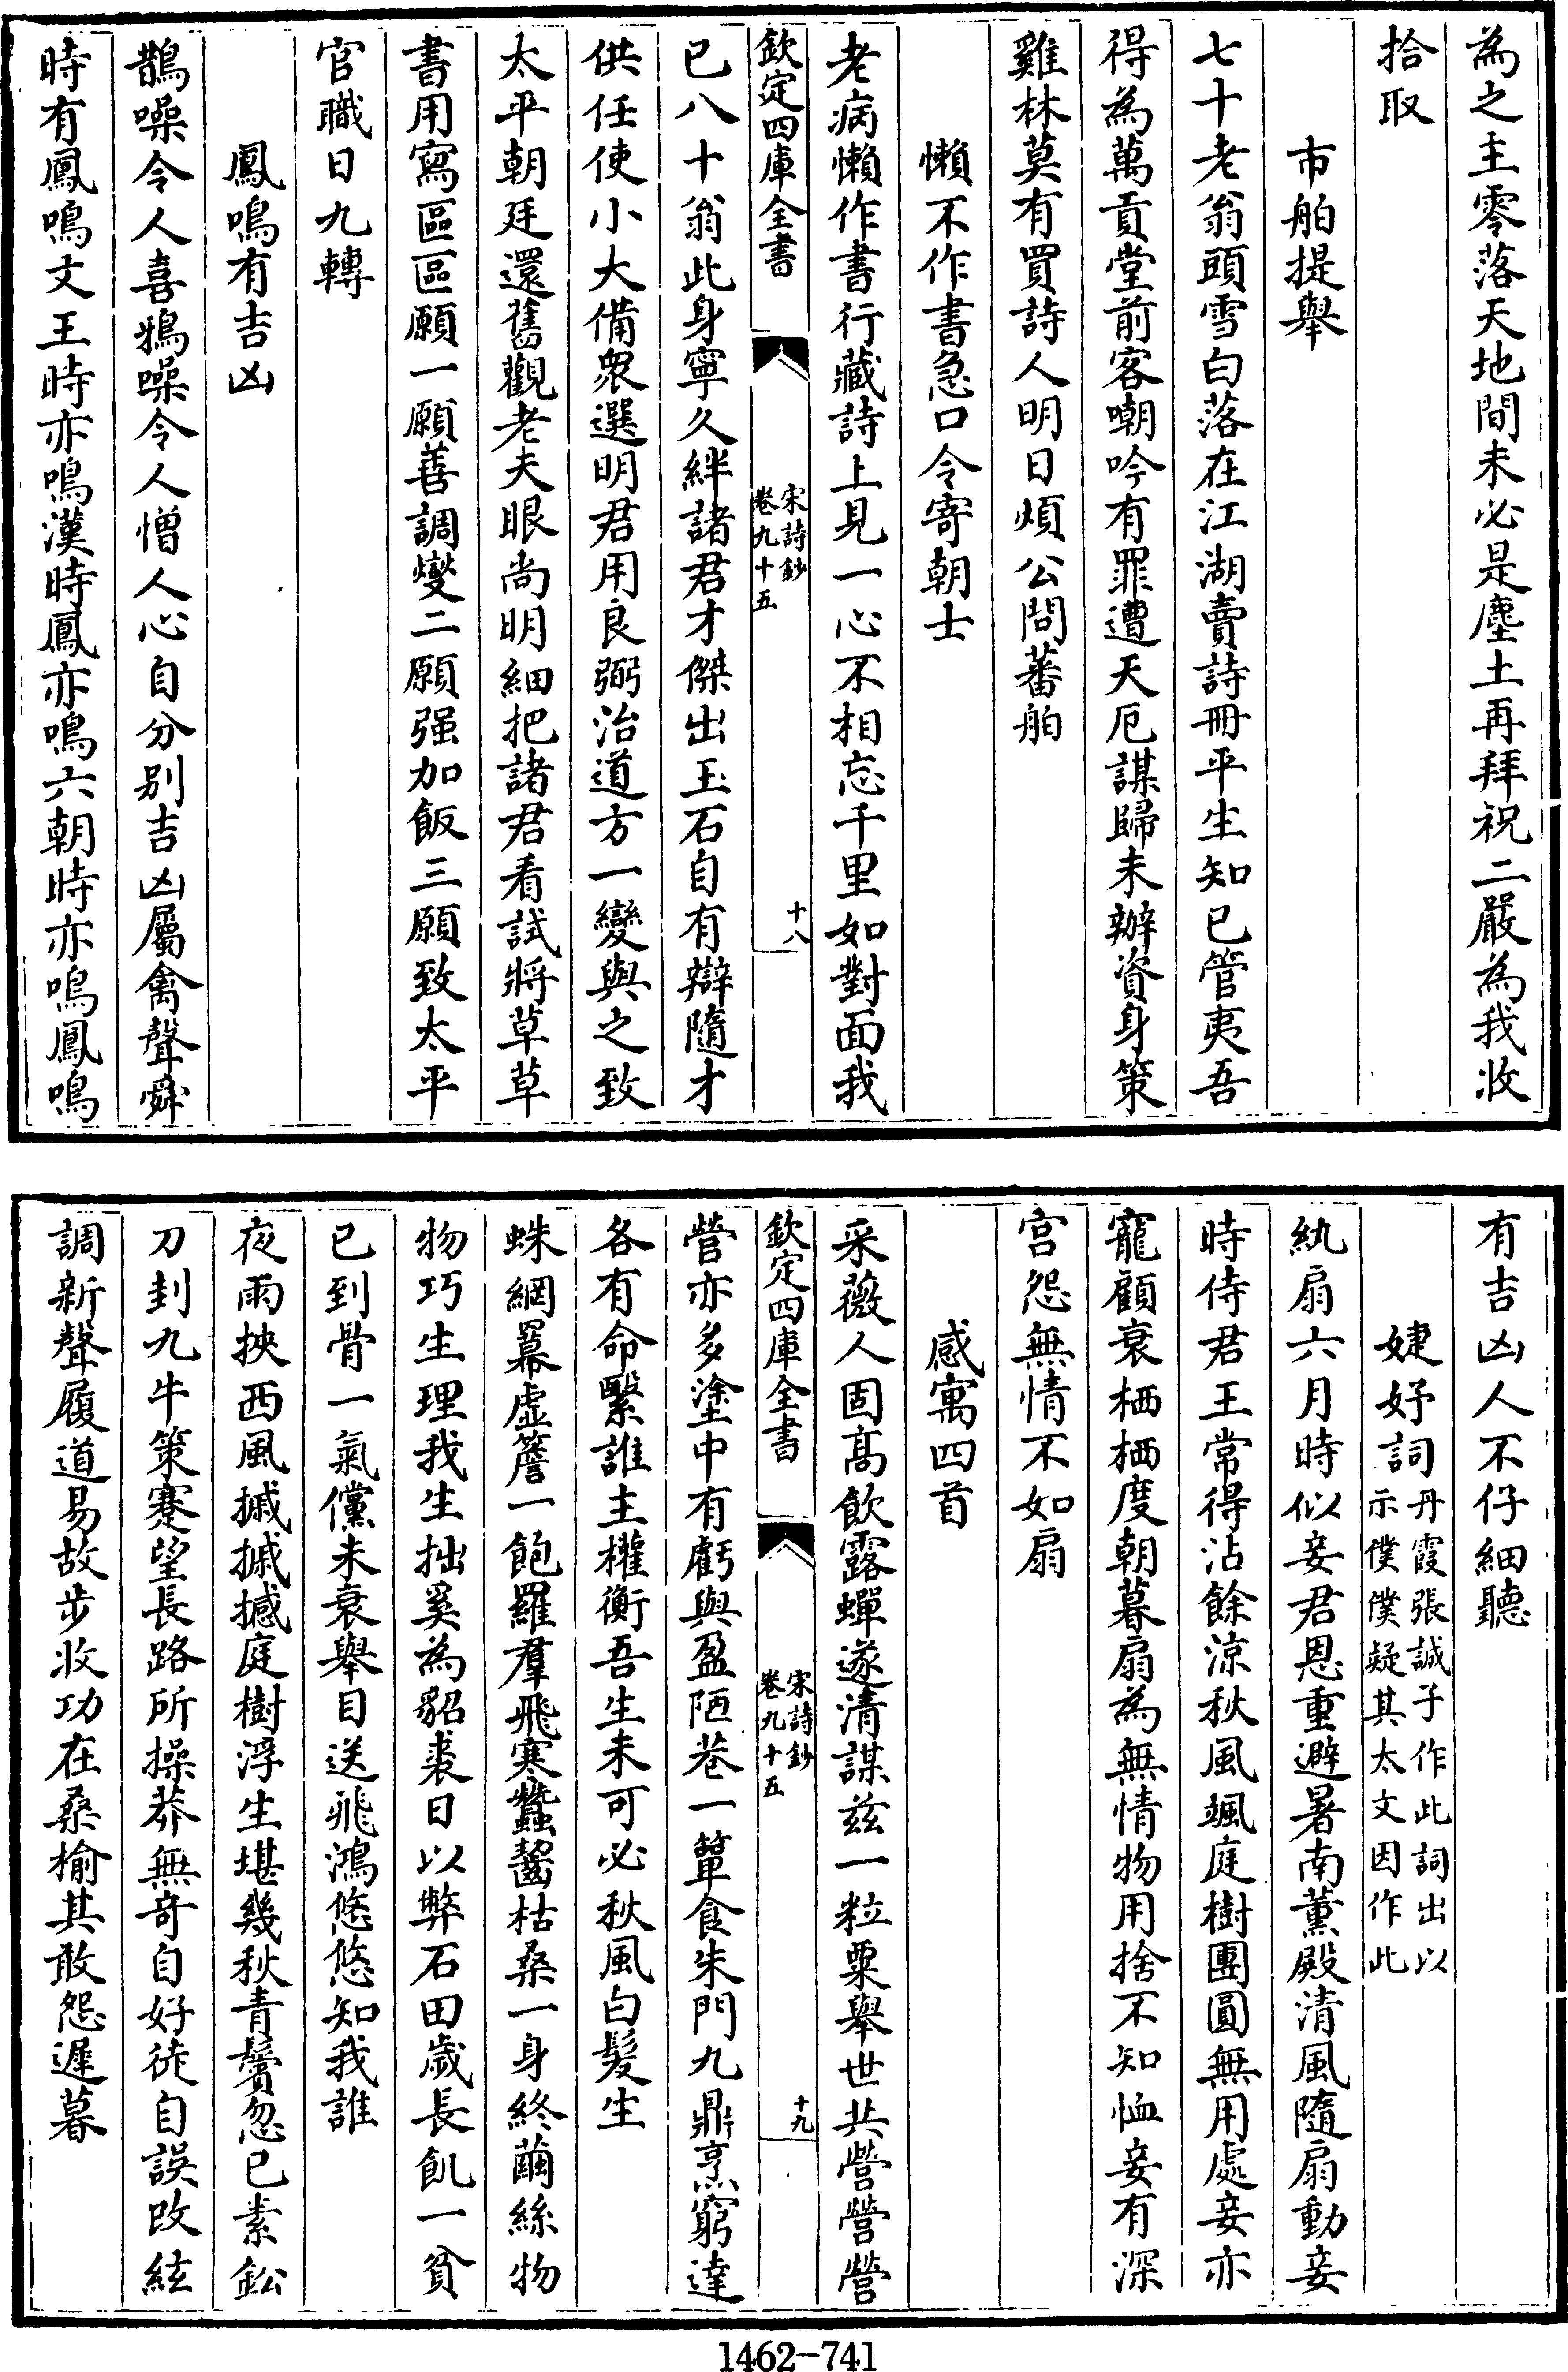 為之主零落天地間未必是塵土再拜祝二嚴為我收
拾取
市舶提舉
七十老翁頭雪白落在江湖賣詩冊平生知已管夷吾
得為萬貢堂前客嘲吟有罪遭天厄謀歸未辦資身策
雞林莫有買詩人明日煩公問蕃舶
懶不作書急口令寄朝士
老病懶作書行藏詩上見一心不相忘千里如對面我
欽定四庫全書
宋詩鈔
卷九十五
十八
已八十翁此身寧久絆諸君才傑出玉石自有辯隨才
供任使小大備衆選明君用良弼治道方一變與之致
太平朝廷還舊觀老夫眼尚明細把諸君看試將草草
書用寫區區願一願善調燮二願强加飯三願致太平
官職日九轉
鳳鳴有吉凶
鵲噪令人喜鴉噪令人憎人心自分別吉凶屬禽聲舜
時有鳳鳴文王時亦鳴漢時鳳亦鳴六朝時亦鳴鳳鳴
有吉凶人不仔細聽
婕妤詞丹霞張誠子作此詞出以
示僕僕疑其太文因作此
紈扇六月時似妾君恩重避暑南薰殿清風隨扇動妾
時侍君王常得沾餘涼秋風颯庭樹團圓無用處妾亦
寵顧衰栖栖度朝暮扇為無情物用捨不知恤妾有深
宮怨無情不如扇
感寓四首
采薇人固高飲露蟬遂清謀兹一粒粟舉世共營營營
欽定四庫全書
宋詩鈔
卷九十五
十九
營亦多塗中有虧與盈陋巷一簞食朱門九鼎烹窮達
各有命繄誰主權衡吾生未可必秋風白髮生
蛛網羃虛簷一飽羅羣飛寒蠶齧枯桑一身終繭絲物
物巧生理我生拙奚為貂裘日以弊石田歲長飢一貧
已到骨一氣儻未衰舉目送飛鴻悠悠知我誰
夜雨挾西風摵摵撼庭樹浮生堪幾秋青鬢忽已素鉛
刀刲九牛策蹇望長路所操莽無奇自好徒自誤改絃
調新聲履道易故步收功在桑榆其敢怨遲暮
1462-741